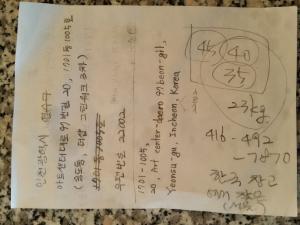 인천광역시 연수구
아트센터대로 97번길 20, 1701동 1005호
(송도동, 더샵 그린워크 3차)
우편번호 22002
1701-1005,
20, Art center-daero 97beon-gil,
Yeonsu-gu, Incheon, Korea
45
40
35
23kg
416-492
-7870
한국